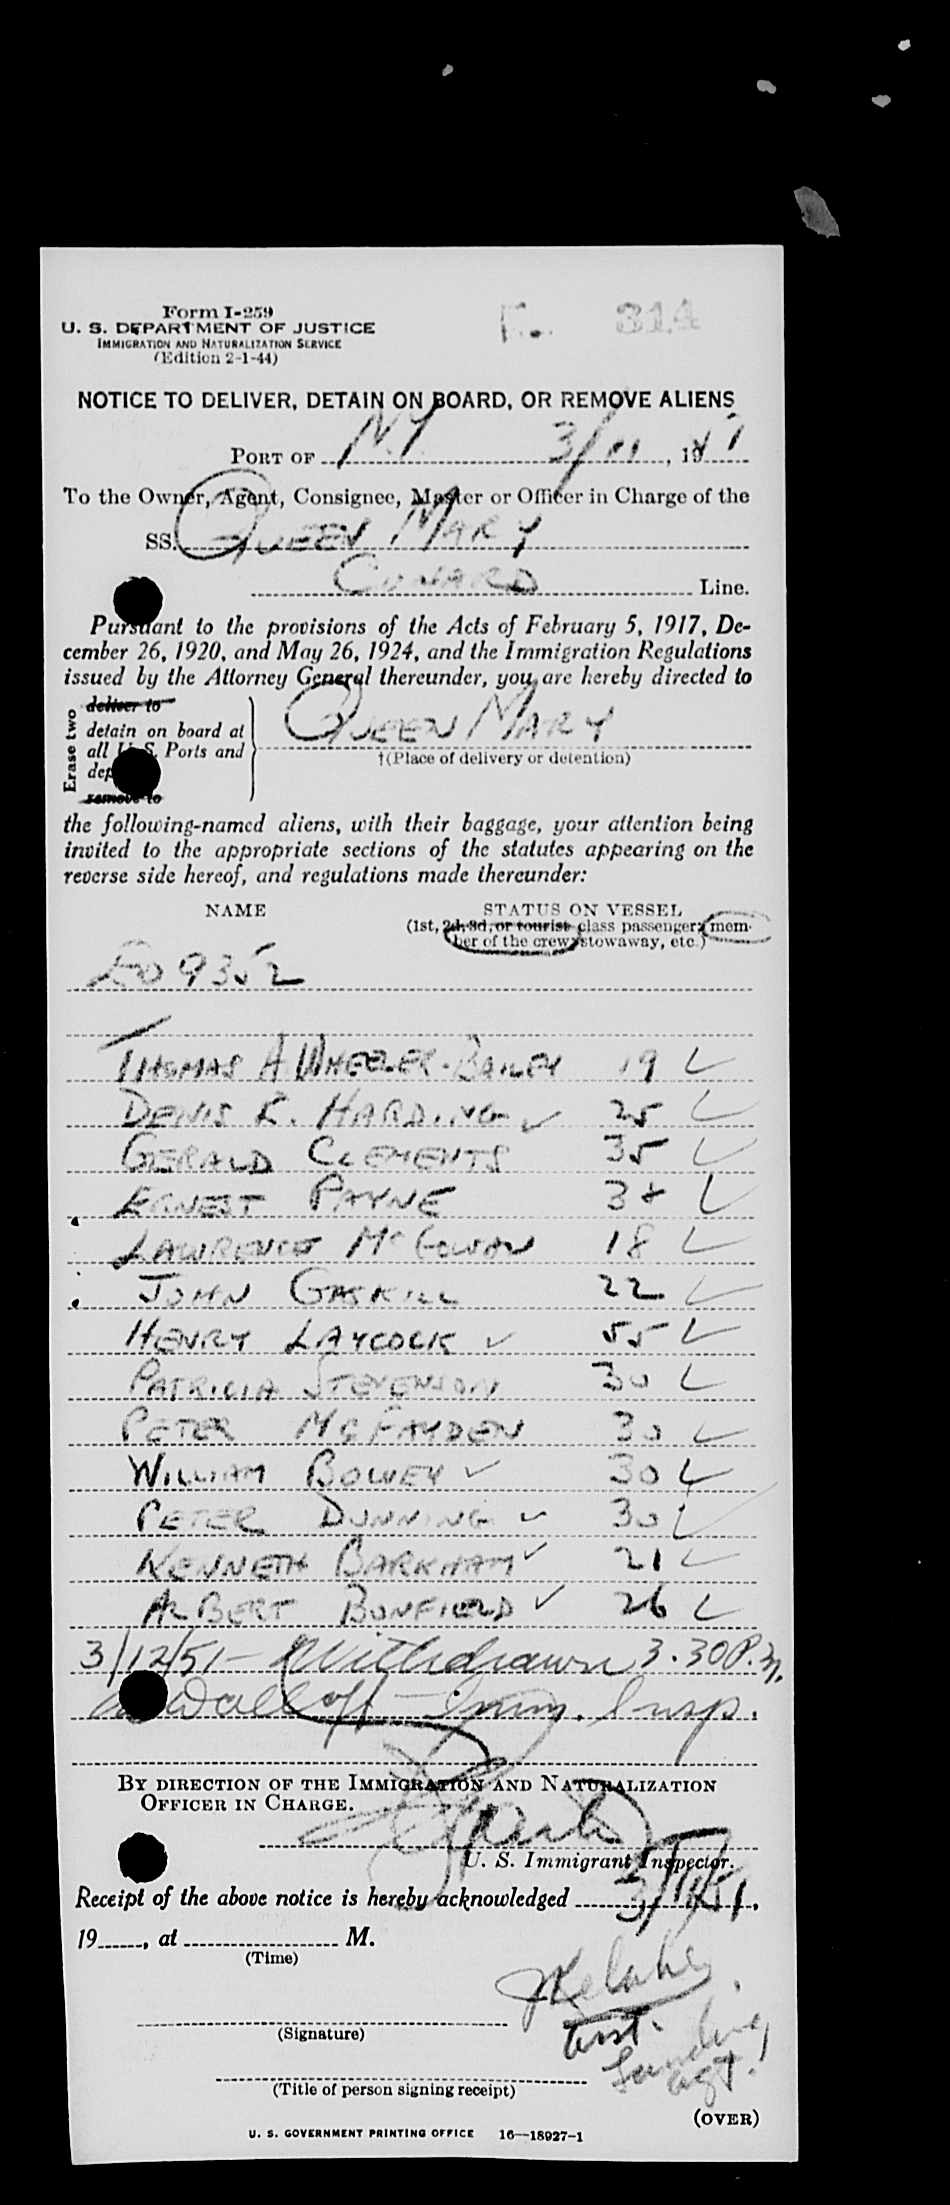 Form I-259
U. S. DEPARTMENT OF JUSTICE
IMMIGRATION AND NATURALIZATION SERVICE
(Edition 2-1-44)
314
NOTICE TO DELIVER, DETAIN ON BOARD, OR REMOVE ALIENS
PORT OF N.Y. 3/11, 19
To the Owner, Agent, Consignee, Master or Officer in Charge of the
SS. QUEEN MARY
CUNARD Line.
Pursuant to the provisions of the Acts of February 5, 1917, De-
cember 26, 1920, and May 26, 1924, and the Immigration Regulations
issued by the Attorney General thereunder, you are hereby directed to
Erase two
deliver to
detain on board at
all U. S. Ports and
remove to
QUEEN MARY
†(Place of delivery or detention)
the following-named aliens, with their baggage, your attention being
invited to the appropriate sections of the statutes appearing on the
reverse side hereof, and regulations made thereunder:
NAME STATUS ON VESSEL
(1st, 2d, 3d, or tourist class passenger; mem-
ber of the crew; stowaway, etc.)
9352
THOMAS A WHEELER-BAILEY 19 ✓
DENIS R. HARDING ✓ 25 ✓
GERALD CLEMENTS 35 ✓
ERNEST PAYNE 38 ✓
LAWRENCE McGOWAN 18 ✓
JOHN GASKILL 22 ✓
HENRY LAYCOCK ✓ 55 ✓
PATRICIA STEVENSON 30 ✓
PETER McFAYDEN 30 ✓
WILLIAM BOWEY ✓ 30 ✓
PETER DUNNING ✓ 30 ✓
KENNETH BARKHAM ✓ 21 ✓
ALBERT BONFIELD ✓ 26 ✓
3/12/51 - Withdrawn 3.30 P.M.
Imm. Insp.
BY DIRECTION OF THE IMMIGRATION AND NATURALIZATION
OFFICER IN CHARGE.
U. S. Immigrant Inspector.
Receipt of the above notice is hereby acknowledged 3/11/51,
19, at M.
(Time)
(Signature)
Asst. Landing
Agt.
(Title of person signing receipt)
(OVER)
U. S. GOVERNMENT PRINTING OFFICE 16—18927-1